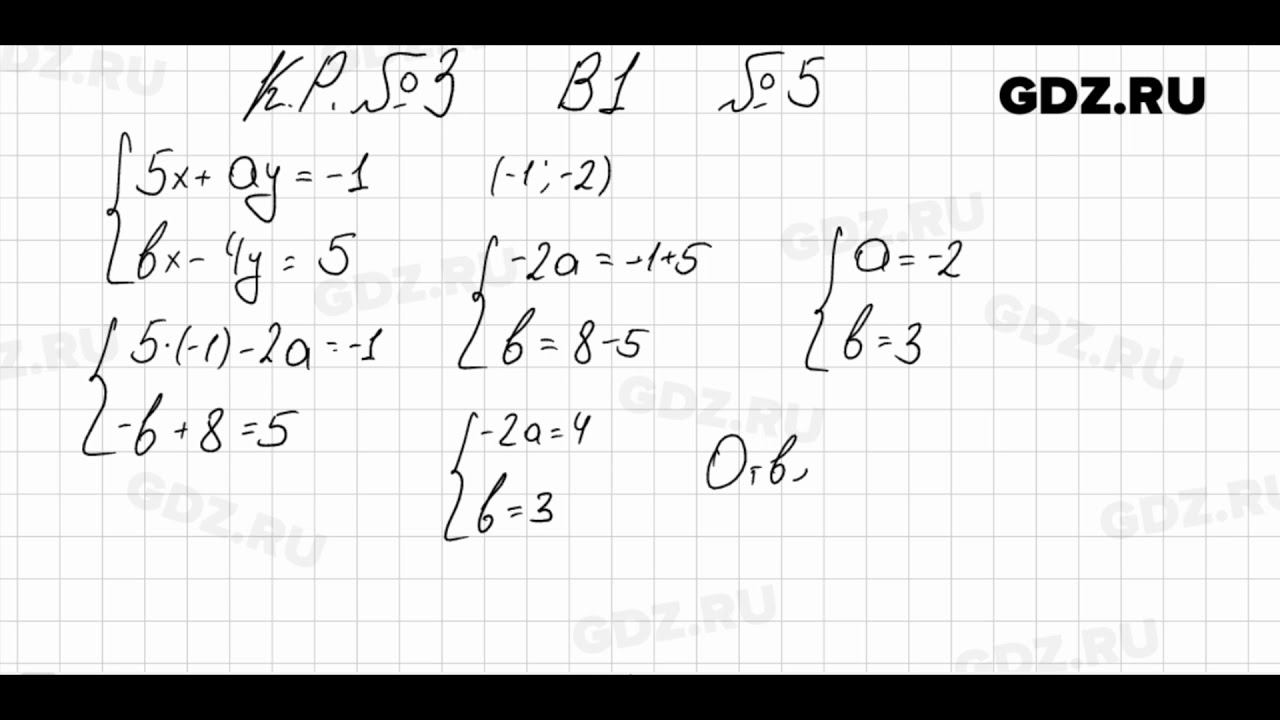 К.Р. №3 В1 №5
GDZ.RU
5x + ay = -1
bx - 4y = 5
(-1; -2)
5·(-1) - 2a = -1
-b + 8 = 5
-2a = -1+5
b = 8-5
-2a = 4
b = 3
a = -2
b = 3
Отв,
GDZ.RU
GDZ.RU
GDZ.RU
GDZ.RU
GDZ.RU
GDZ.RU
GDZ.RU
GDZ.RU
GDZ.RU
GDZ.RU